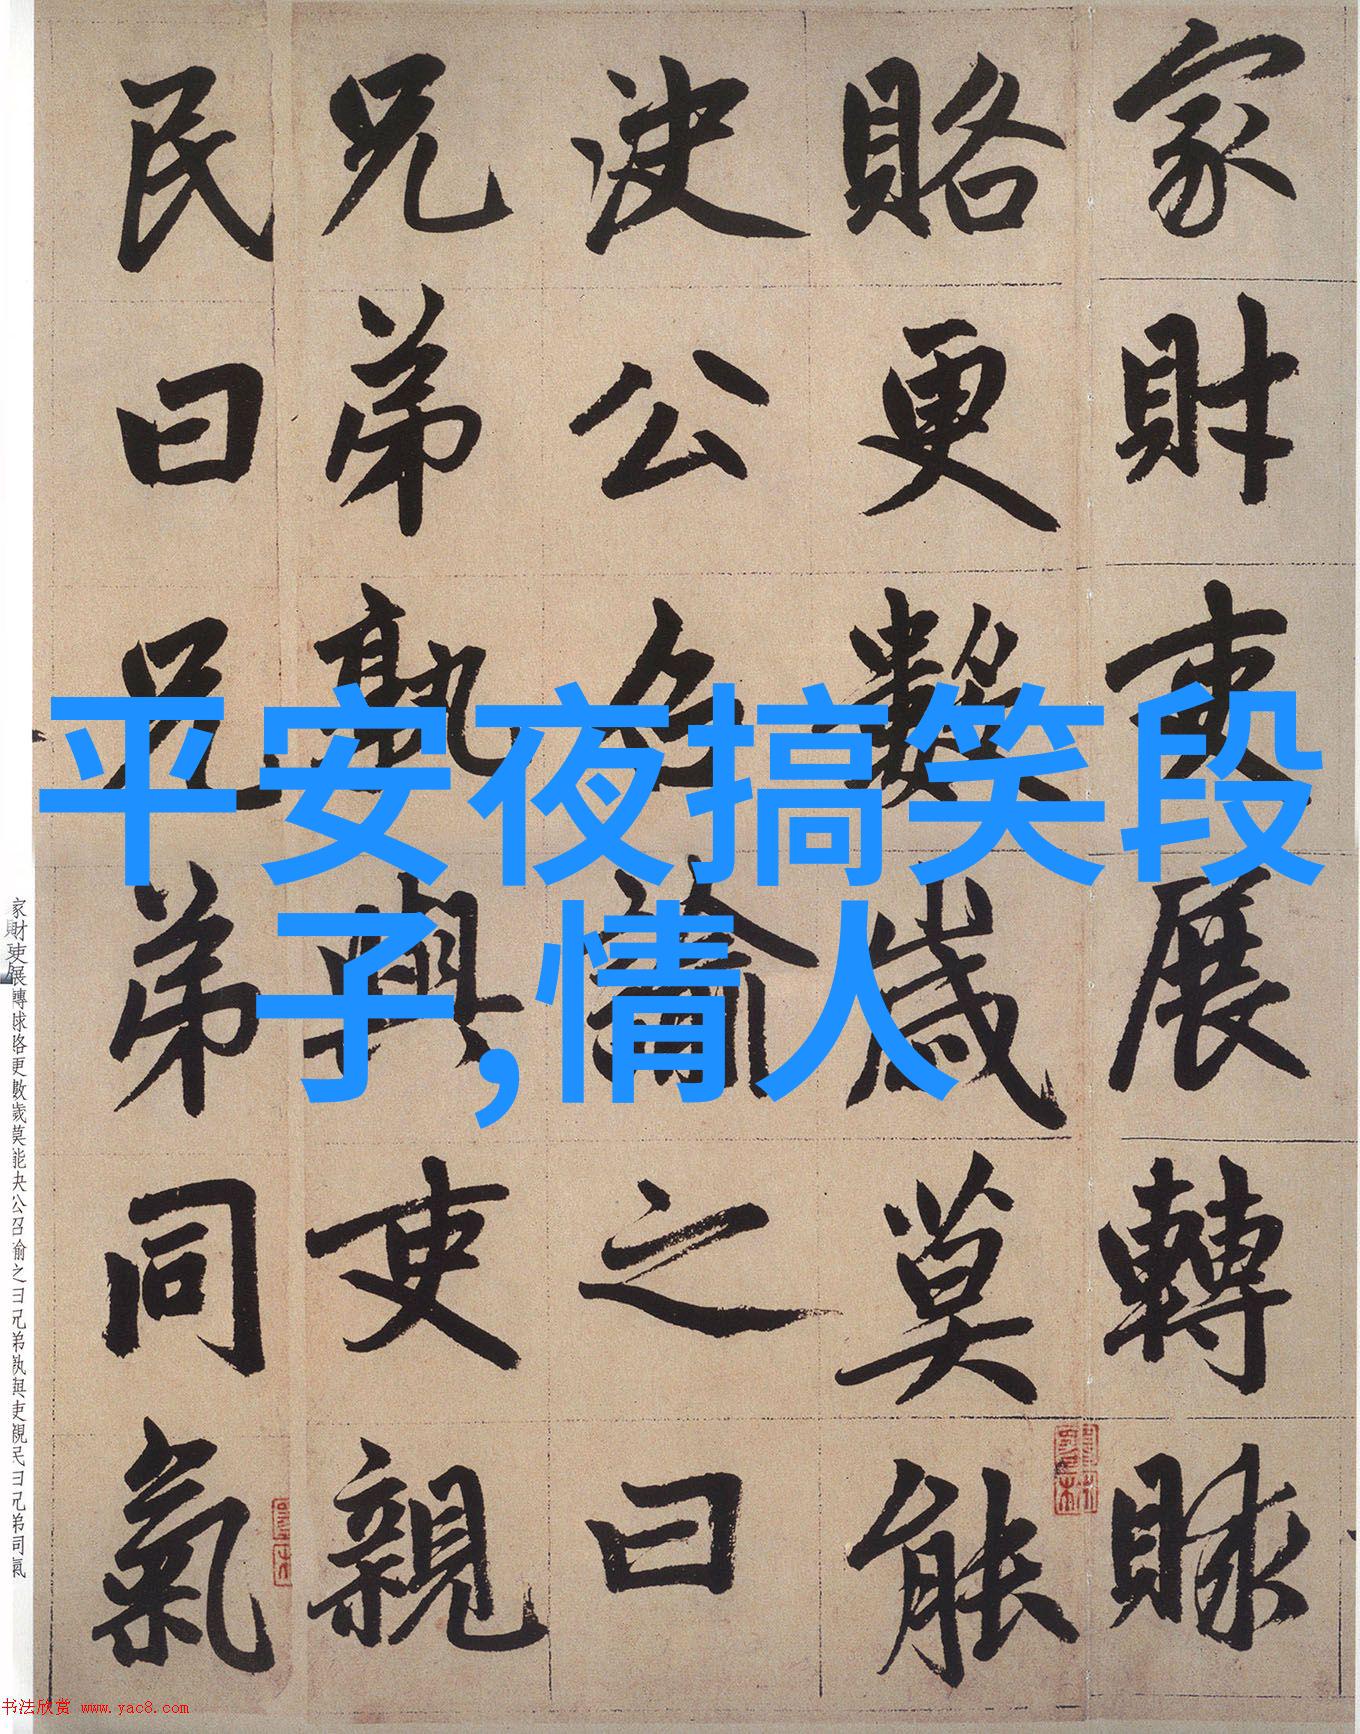 家財吏展轉賕
賂更數歲莫能
決公召諭之曰
兄弟孰與吏親
民曰兄弟同氣
平安夜搞笑段
子,情人
家財吏展轉賕賂更數歲莫能決公召諭之曰兄弟孰與吏親民曰兄弟同氣
书法欣赏 www.yac8.com